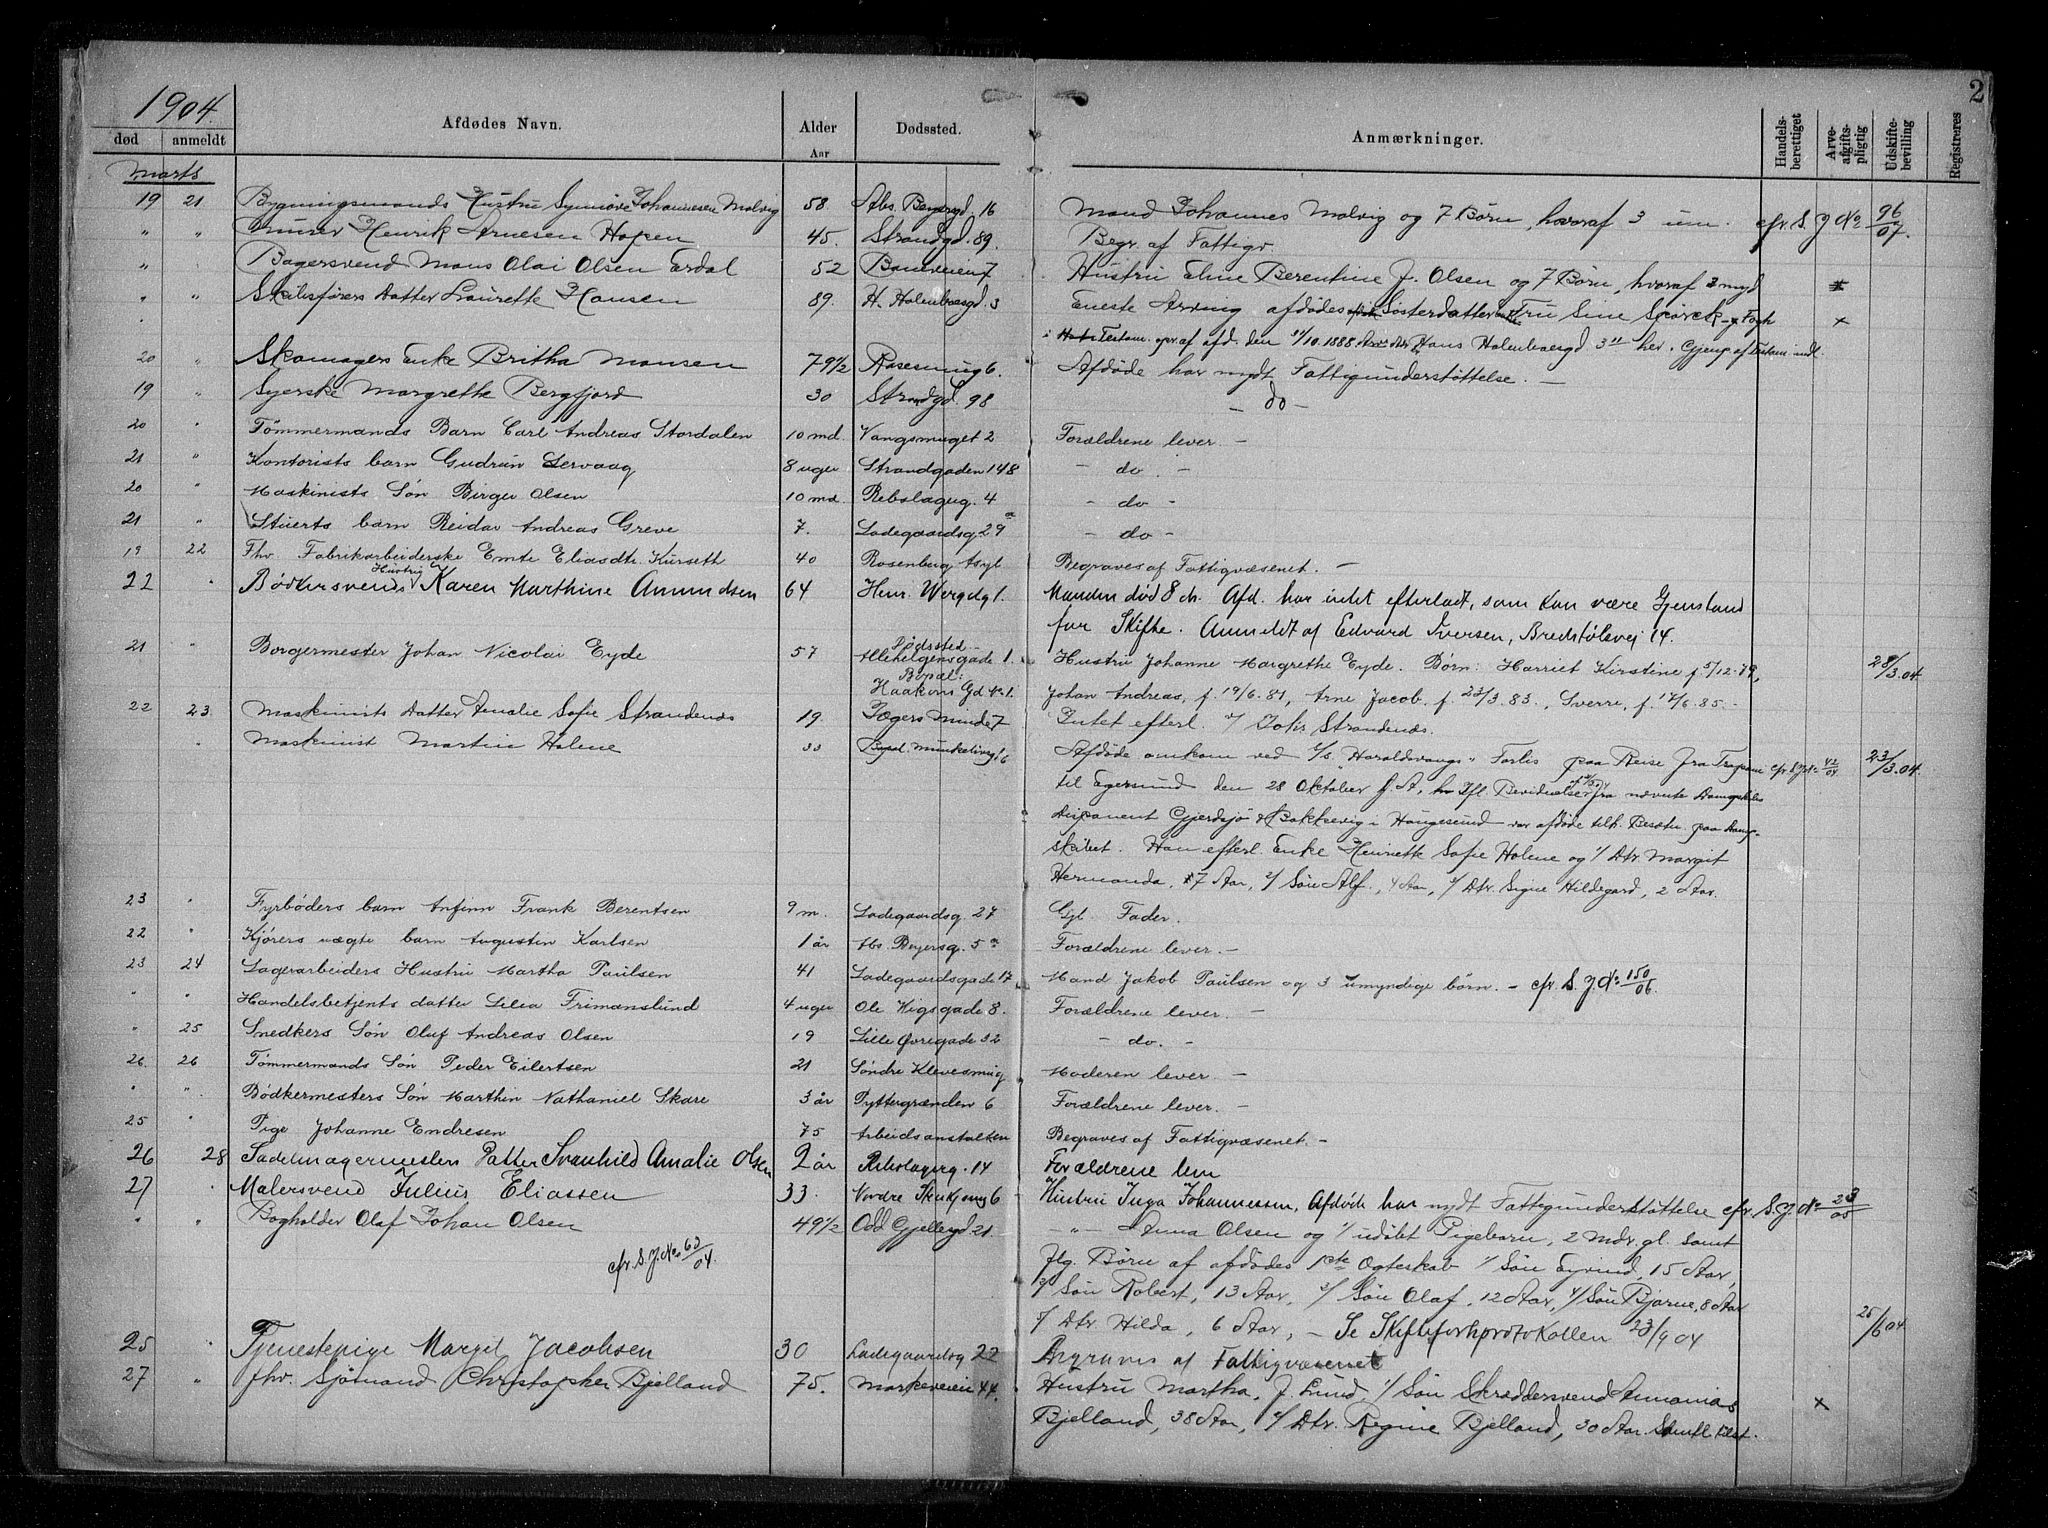 2
1904.
død anmeldt Afdødes Navn. Alder Aar Dødssted. Anmærkninger. Handelsberettiget Arveafgiftspligtig Udskiftebevilling Registreres
Marts
19 21 Bygningsmands Hustru Synnøve Johannesen Malvig 58 Abs. Beyersgd 16 Mand Johannes Malvig og 7 Børn, hvoraf 3 um. cfr. S. J. No 96/07.
" " Murer Henrik Arnesen Hopen 45. Strandgd. 89. Begr. af Fattigv
" Bagersvend Mons Olai Olsen Erdal 52 Baneveien 7 Hustru Eline Berentine J. Olsen og 7 Børn, hvoraf 3 myd
" " Skibsførers Datter Laurette Hansen 89. H. Holmboesgd 3 Eneste Arving afdødes Søsterdatter Fru Sine Störck
Testam. opr. af afd. den 31/10.1888. Hans Holmboesgd 3 her. Gjenp af Testam. indl.
20 " Skomagers Enke Britha Monsen 79 1/2 Rosesmug 6. Afdøde har nydt Fattigunderstøttelse. —
19 " Syerske Margrethe Bergfjord 30 Strandgd. 98 — do —
20 " Tømmermands Barn Carl Andreas Stordalen 10 md. Vangsmuget 2 Forældrene lever. —
21 " Kontorists barn Gudrun Lervaag 8 uger Strandgaden 148 - do -
20 " Maskinists Søn Birger Olsen 10 md. Rebslagerg. 4 - do -
21 " Stuerts barn Reidar Andreas Greve 7. Ladegaardsg. 29a - do -
19 22 Fhv. Fabrikarbeiderske Emte Eliasdtr. Kurseth 40 Rosenberg Asyl Begraves af Fattigvæsenet. —
22 " Bødkersvends Hustru Karen Marthine Amundsen 64 Henr. Wergelg 1. Manden død 8 ch. Afd. har intet efterladt, som kan være Gjenstand
for Skifte. Anmeldt af Edvard Iversen, Bredstølsvei 14.
21 " Borgermester Johan Nicolai Eyde 57 Dødssted - Allehelgensgade 1. Bopæl: Haakons Gd No 1. Hustru Johanne Margrethe Eyde. Børn: Harriet Kirstine f. 5/12.79, 28/3.04
Johan Andreas, f. 19/6.81, Arne Jacob. f. 23/3.83., Sverre, f. 17/6.85. -
22 23 Maskinists Datter Amalie Sofie Strandenæs 19 Jægers Minde 7 Intet efterl. v/ Johs Strandenæs.
" Maskinist Martin Halene 33 Bopæl Munkelivsg 6 Afdøde omkom ved S/S "Haraldsvangs" Forlis paa Reise fra Trapani cfr. S. J. No 42/04 23/3.04.
til Egersund den 28 Oktober f. A, Ifl. Bevidnelse fra nævnte Dampskibs
Disponent Gjerdsjø & Bakkevig i Haugesund var afdøde tilh. Besætn. paa Damp-
skibet. Han efterl. Enke Henriette Sofie Halene og 1/ Dtr. Margit
Hermanda, 7 Aar, 2/ Søn Alf., 4 Aar, 3/ Dtr. Signe Hildegard, 2 Aar.
23 " Fyrbøders barn Anfinn Frank Berentsen 9 m. Ladegaardsg. 27 Gjl. Fader.
22 " Kjørers uægte barn Augustin Karlsen 1 år Abs. Beyersg. 5a Forældrene lever. —
23 24 Lagerarbeiders Hustru Martha Paulsen 41 Ladegaardsgade 17 Mand Jakob Paulsen og 3 umyndige børn. - cfr. S. J. No 150/06.
" " Handelsbetjents datter Lilla Frimanslund 4 uger Ole Vigsgade 8. Forældrene lever. —
" 25 Snedkers Søn Oluf Andreas Olsen 19 Lille Øvregade 32 - do. -
26 26 Tømmermands Søn Peder Eilertsen 21 Søndre Klevesmug Moderen lever. —
" " Bødkermesters Søn Marthin Nathaniel Skare 3 år Pyttergrænden 6 Forældrene lever. —
25 " Pige Johanne Endresen 75 Arbeidsanstalten Begraves af Fattigvæsenet. —
26 28 Sadelmagermesters Datter Svanhild Amalie Olsen 2 år Rebslagerg. 14 Forældrene leve
27 " Malersvend Julius Eliassen 33. Nordre Skutevig 6 Hustru Inga Johannessen, Afdøde har nydt Fattigunderstøttelse cfr. S. J. No 23/05
" " Bogholder Olaf Johan Olsen 49 1/2 Odd Gjellesgd 21. — " — Anna Olsen og 1/ udøbt Pigebarn, 2 Mdr. gl. samt
cfr. S. J. No 63/04. flg. Børn af afdødes 1ste Ægteskab 1/ Søn Eyvind, 15 Aar,
2/ Søn Robert, 13 Aar, 3/ Søn Olaf, 12 Aar, 4/ Søn Bjarne, 8 Aar
5/ Dtr. Hilda, 6 Aar, — Se Skifteforhprotokollen 23/9 04 25/6 04
25 " Tjenestepige Margit Jacobsen 30 Ladegaardsg 22 Begraves af Fattigvæsenet
27 " fhv. Sjømand Christopher Bjelland 75. Markeveien 44. Hustru Martha, J. Lund, 1/ Søn Skræddersvend Ananias ×
Bjelland, 38 Aar, 2/ Dtr. Regine Bjelland, 30 Aar. Samtl. tilst.